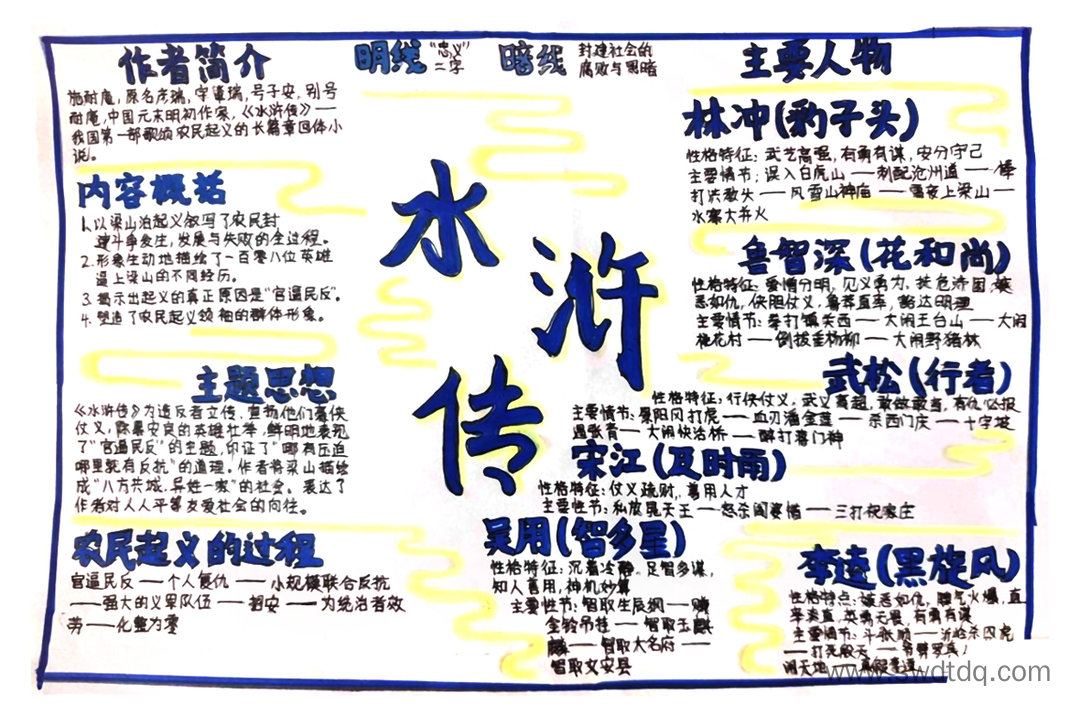 作者简介
施耐庵,原名彦端,字肇瑞,号子安,别号
耐庵,中国元末明初作家,《水浒传》——
我国第一部歌颂农民起义的长篇章回体小
说。
内容概括
1.以梁山泊起义叙写了农民封
建斗争发生,发展与失败的全过程。
2.形象生动地描绘了一百零八位英雄
逼上梁山的不同经历。
3.揭示出起义的真正原因是"官逼民反"。
4.塑造了农民起义领袖的群体形象。
主题思想
《水浒传》为造反者立传,宣扬他们豪侠
仗义,除暴安良的英雄壮举,鲜明地表现
了"官逼民反"的主题,印证了"哪有压迫
哪里就有反抗"的道理。作者将梁山描绘
成"八方共域,异姓一家"的社会。表达了
作者对人人平等友爱社会的向往。
农民起义的过程
官逼民反——个人复仇——小规模联合反抗
——强大的义军队伍——招安——为统治者效
劳——化整为零
明线 "忠义"
二字
暗线 封建社会的
腐败与黑暗
水
浒
传
主要人物
林冲(豹子头)
性格特征:武艺高强,有勇有谋,安分守己
主要情节:误入白虎山——刺配沧州道——棒
打洪教头——风雪山神庙——雪夜上梁山——
水寨大并火
鲁智深(花和尚)
性格特征:爱憎分明,见义勇为,扶危济困,嫉
恶如仇,侠胆仗义,鲁莽直率,豁达明理
主要情节:拳打镇关西——大闹王台山——大闹
桃花村——倒拔垂杨柳——大闹野猪林
武松(行者)
性格特征:行侠仗义,武艺高超,敢做敢当,有仇必报
主要情节:景阳冈打虎——血刃潘金莲——杀西门庆——十字坡
遇张青——大闹快活桥——醉打蒋门神
宋江(及时雨)
性格特征:仗义疏财,善用人才
主要性节:私放晁天王——怒杀阎婆惜——三打祝家庄
吴用(智多星)
性格特征:沉着冷静,足智多谋,
知人善用,神机妙算
主要性节:智取生辰纲——赚
金铃吊挂——智取玉麒
麟——智取大名府——
智取文安县
李逵(黑旋风)
性格特点:嫉恶如仇,脾气火爆,直
率莽直,英勇无畏,有勇有谋
主要情节:斗张顺——沂岭杀四虎
——打死殷天
闹天地
www.swdtdq.com